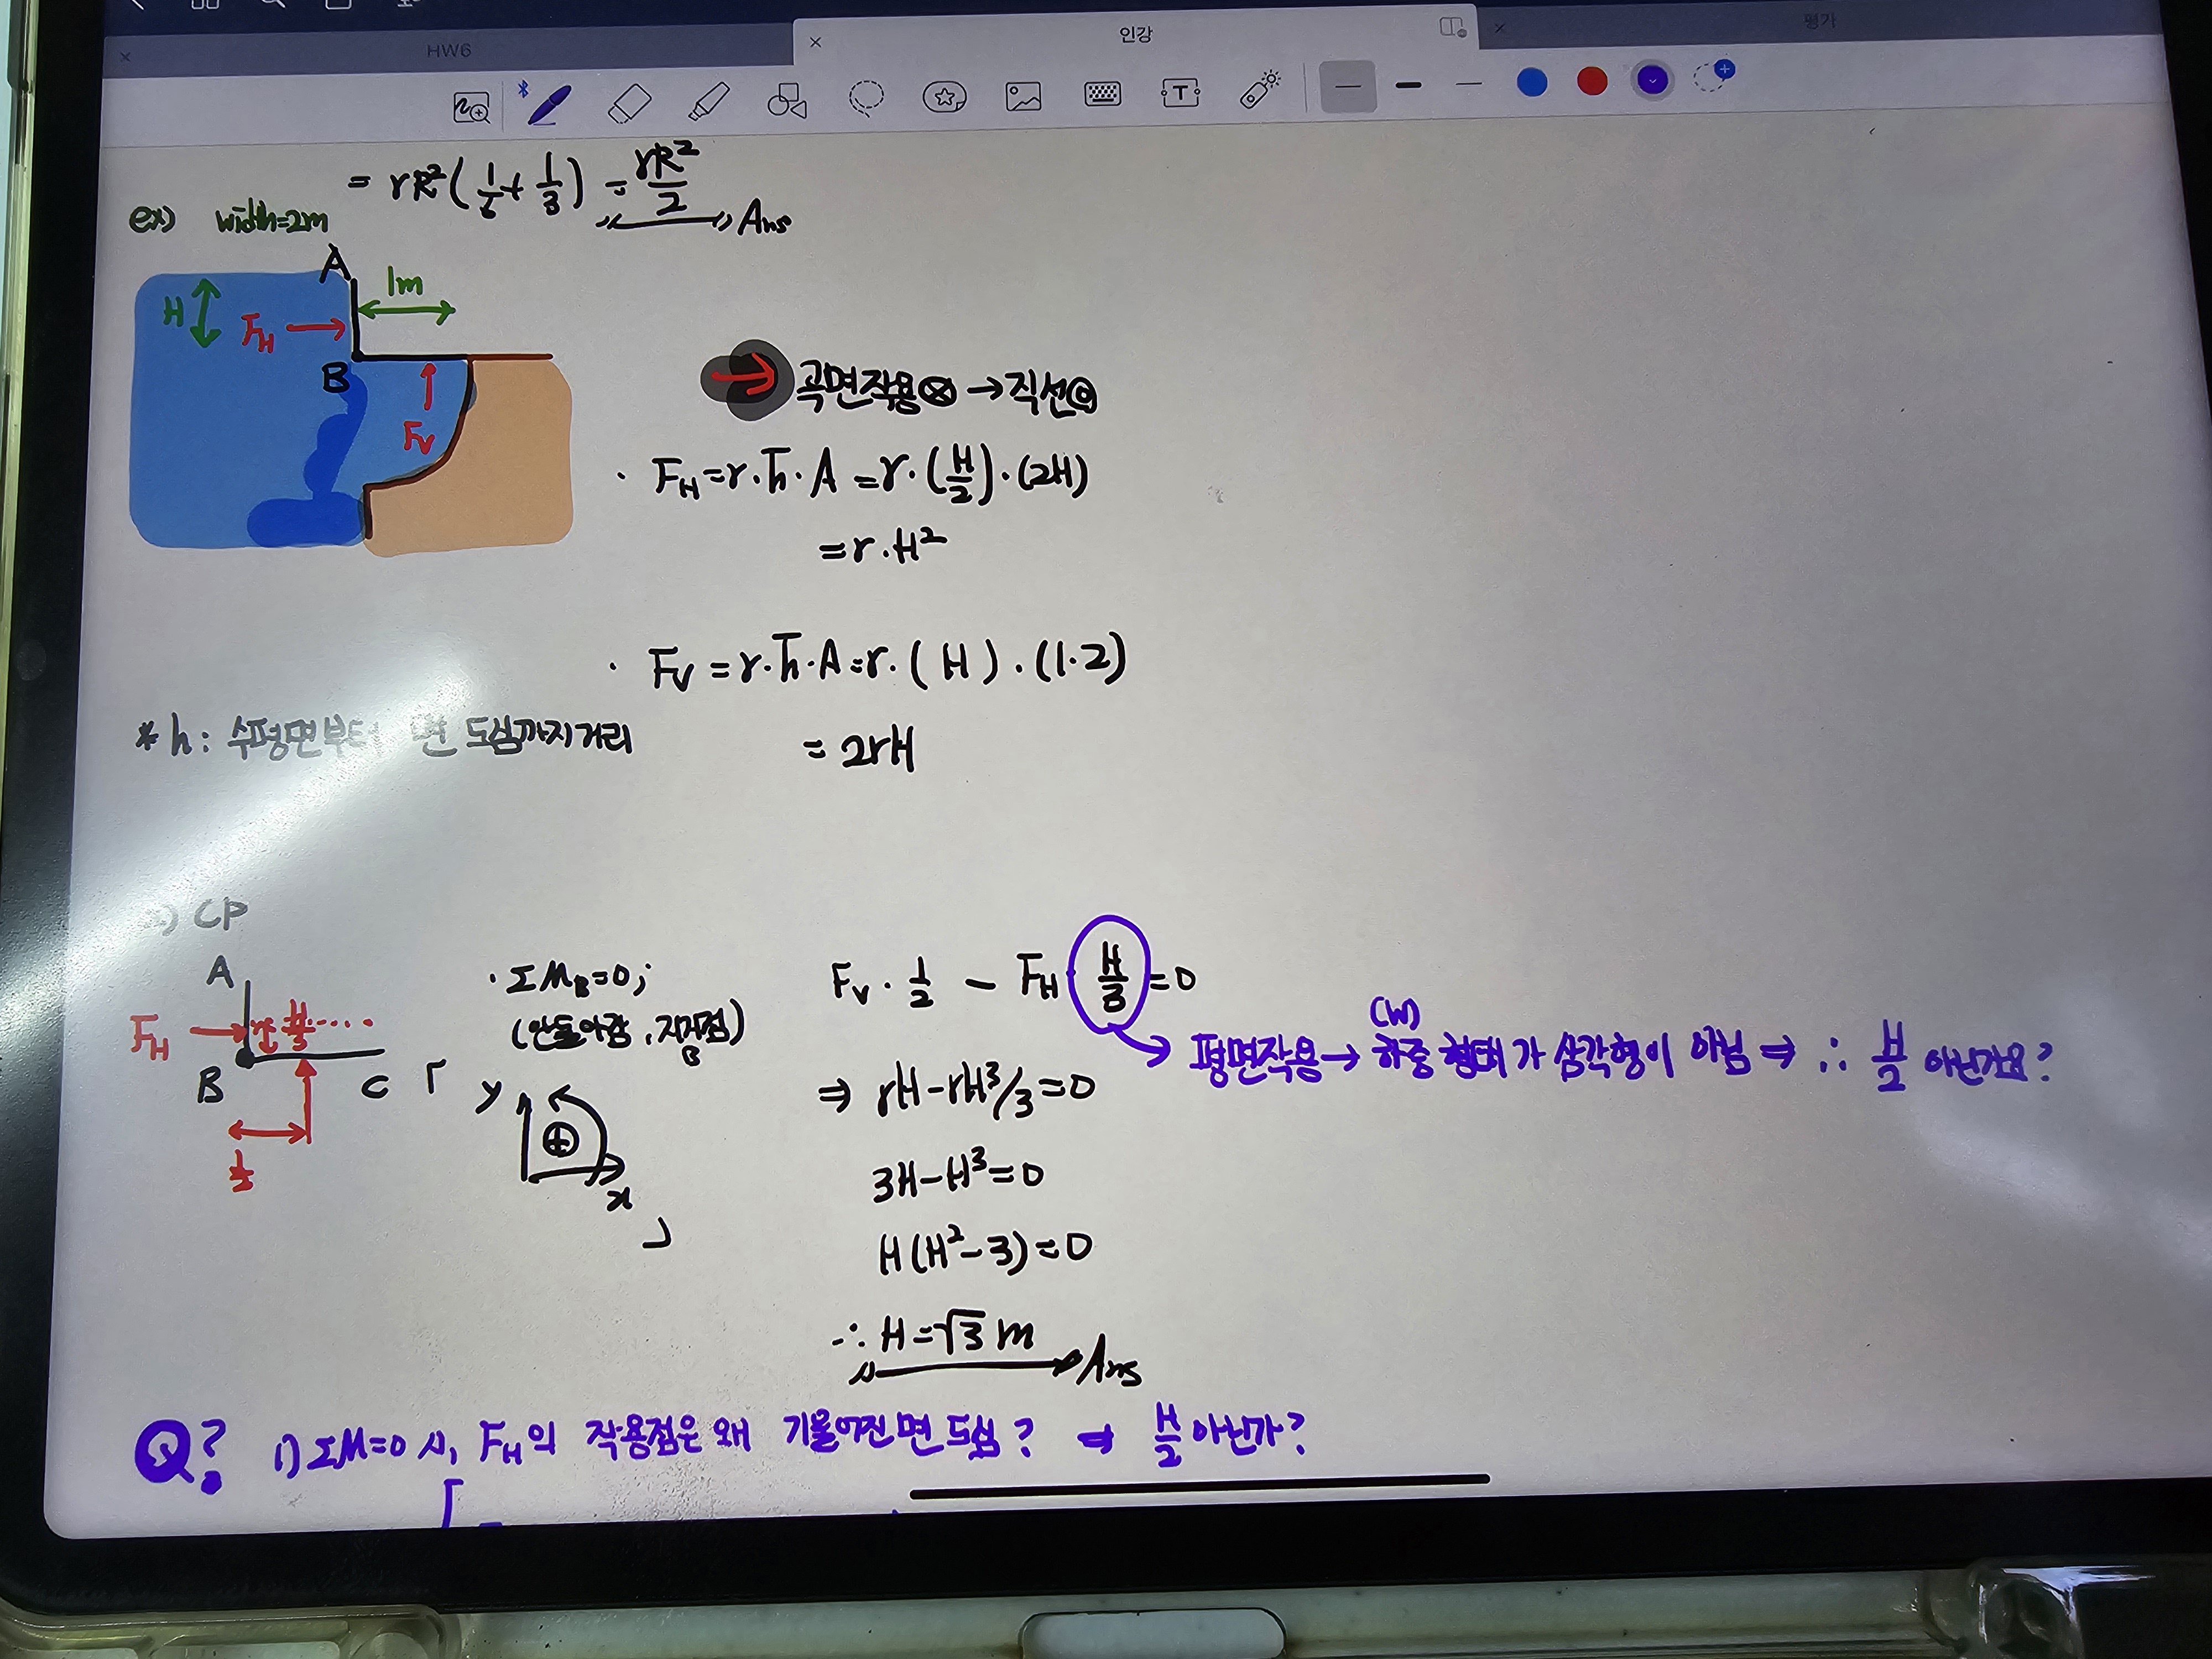 HW6
인강
평가
= rR²(1/6+1/3) = rR²/2
Ans
ex) width=2m
A
1m
H
F_H
B
F_V
곡면작용⊗ → 직선◎
· F_H = r·h̄·A = r·(H/2)·(2H)
= r·H²
· F_V = r·h̄·A = r·(H)·(1·2)
= 2rH
* h : 수평면부터 면 도심까지 거리
CP
A
F_H
B
C
1/2
· ΣM_B=0;
(안돌아감, 지지점)
B
y
⊕
x
F_V · 1/2 - F_H · H/3 = 0
(W)
평면작용 → 하중 형태가 삼각형이 아님 ⇒ ∴ H/2 아닌가요?
⇒ rH-rH³/3=0
3H-H³=0
H(H²-3)=0
∴ H=√3 m
Ans
Q? 1) ΣM=0 시, F_H의 작용점은 왜 기울어진 면 도심? ⇒ H/2 아닌가?